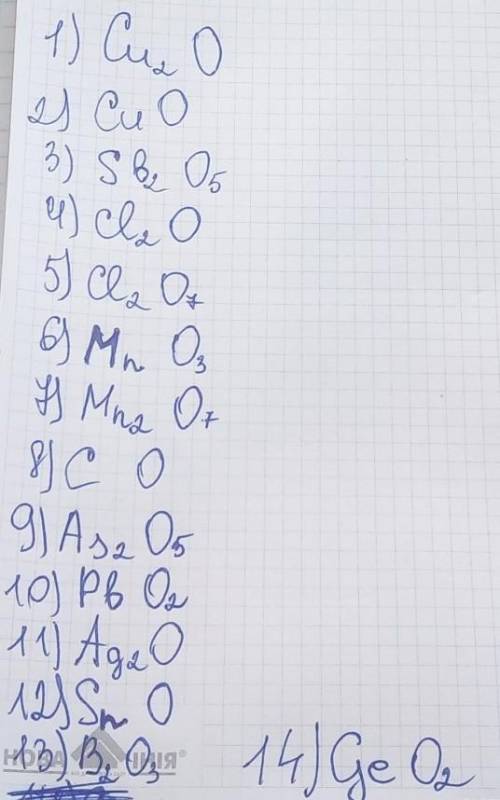 1) Cu₂ O
2) Cu O
3) Sb₂ O₅
4) Cl₂ O
5) Cl₂ O₇
6) Mn O₃
7) Mn₂ O₇
8) C O
9) As₂ O₅
10) Pb O₂
11) Ag₂ O
12) Sn O
13) B₂ O₃
14) Ge O₂
НОВА ЛІНІЯ®